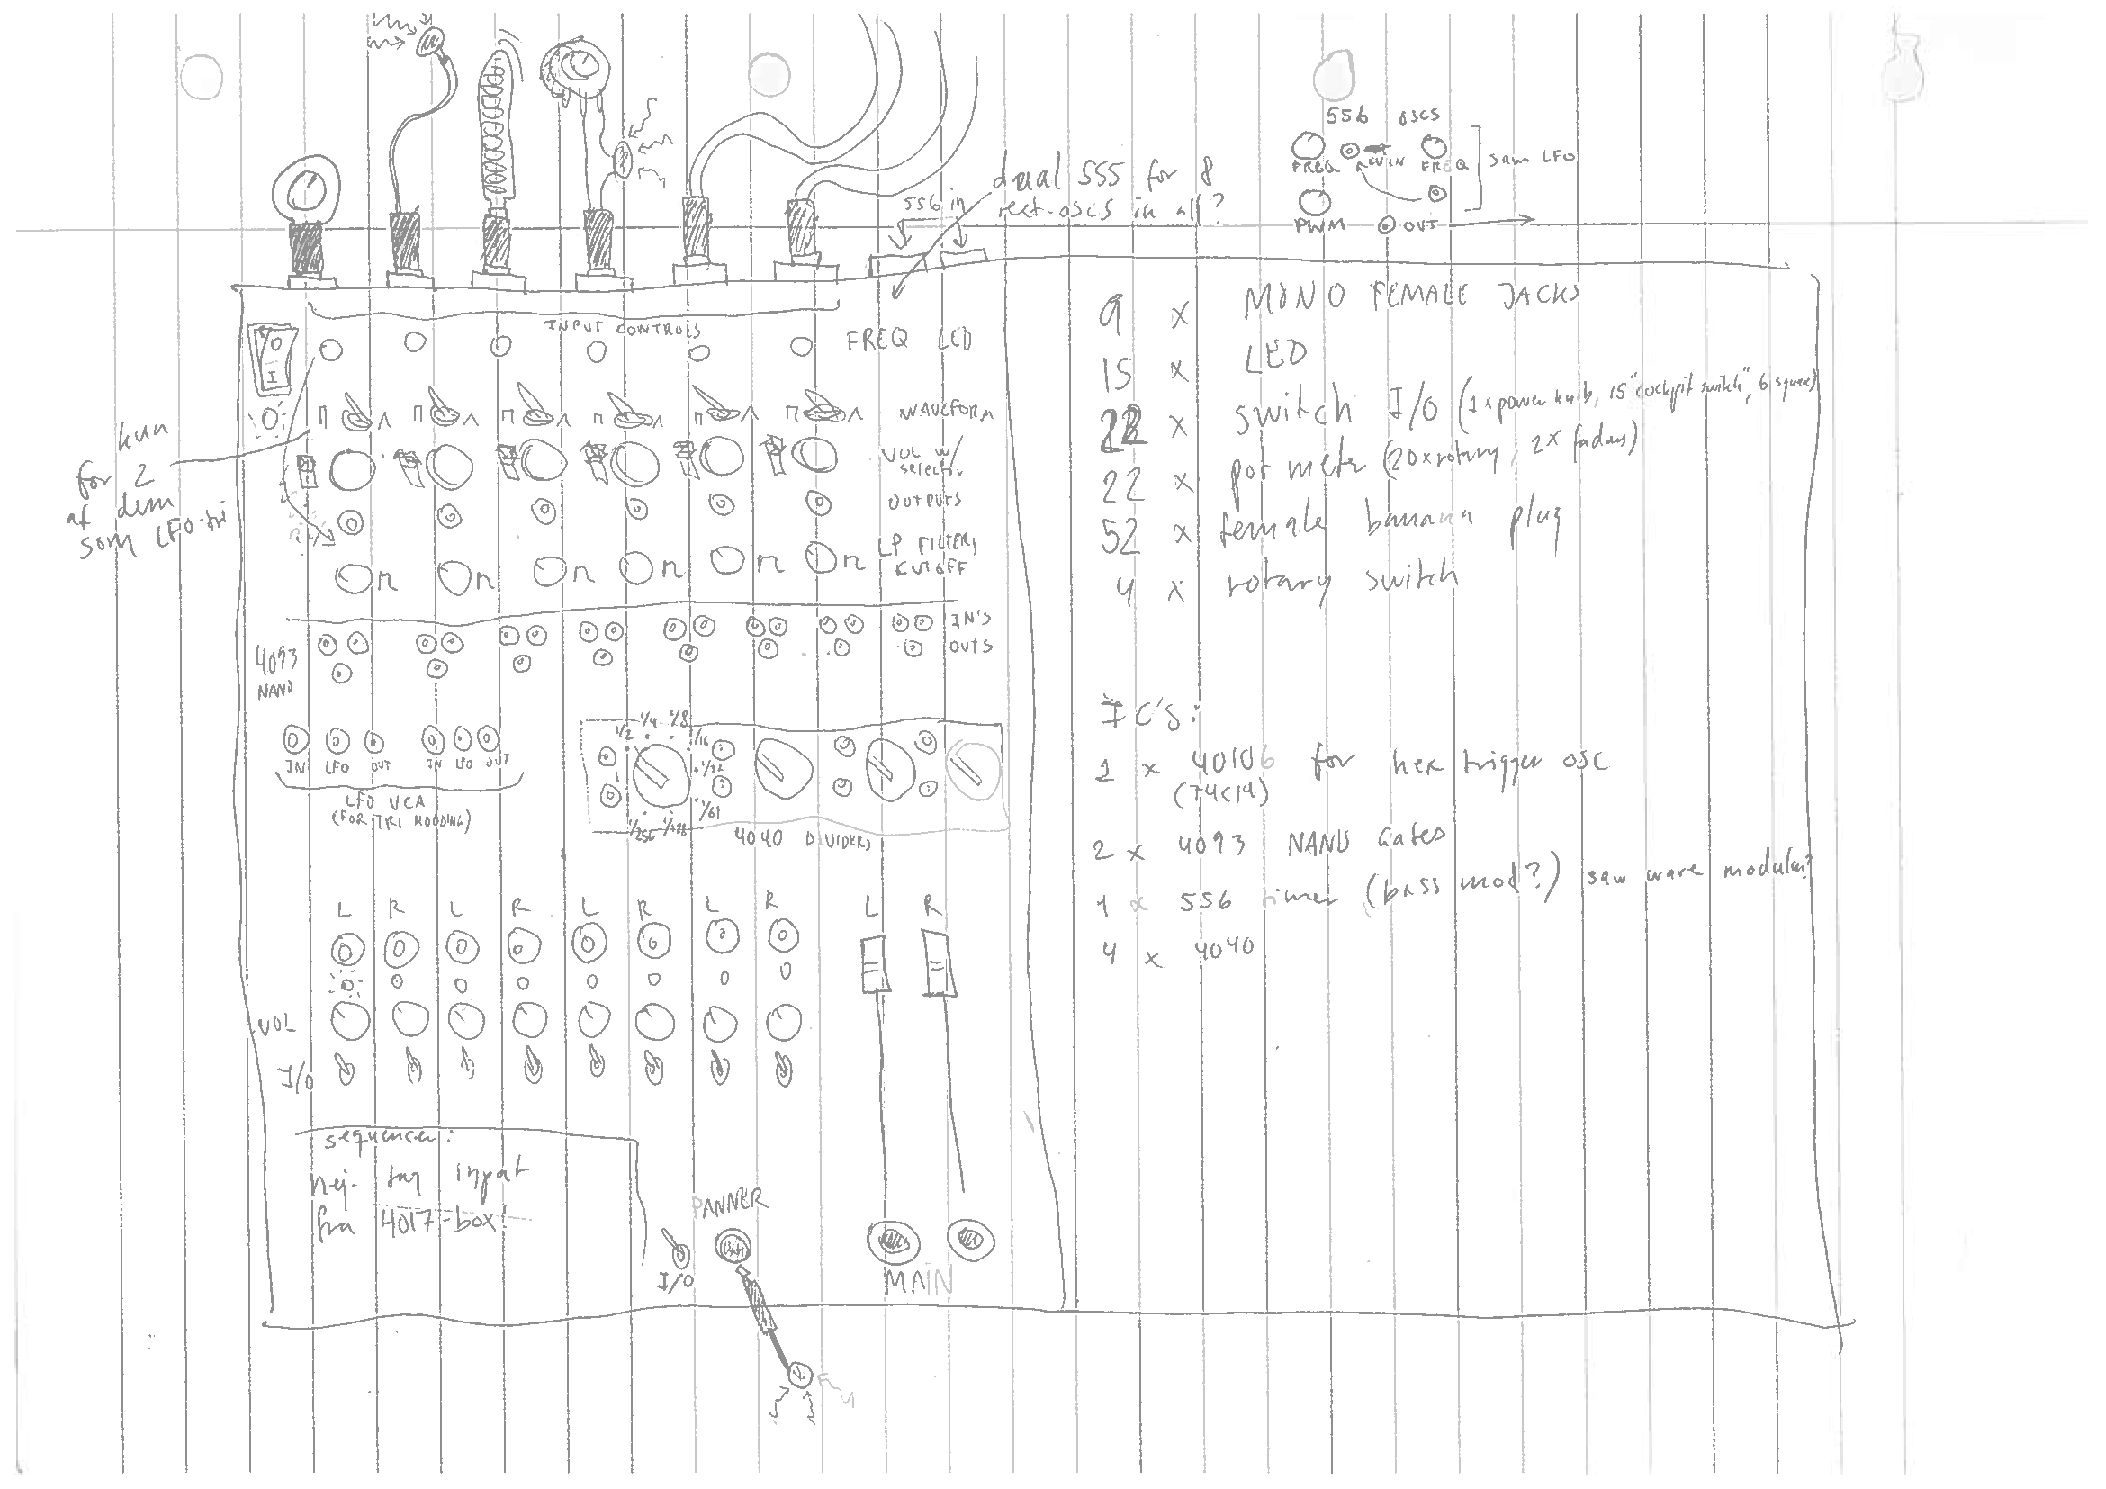 556 OSCS
FREQ FREQ
saw LFO
PWM OUT
556 in
dual 555 for 8
rect-oscs in all?
INPUT CONTROLS
FREQ LED
WAVEFORM
VOL W/
OUTPUTS
LP FILTER,
CUTOFF
kun
for 2
af dem
som LFO-tri
4093
NAND
IN'S
OUTS
IN LFO OUT IN LFO OUT
LFO VCA
1/2 1/4 1/8
1/16
1/32
1/64
1/256 1/128
4040 DIVIDERS
L R L R L R L R L R
VOL
I/O
sequencer:
nej. tag input
fra 4017-box!
PANNER
I/O
MAIN
9 x MONO FEMALE JACKS
15 x LED
22 x switch I/O (1 x power knib, 15 "cockpit switch", 6 square)
22 x pot meter (20 x rotary, 2 x faders)
52 x female banana plug
4 x rotary switch
IC'S:
1 x 40106 for hex trigger osc
(74C14)
2 x 4093 NAND Gates
1 x 556 timer (bass mod?) saw wave modular?
4 x 4040